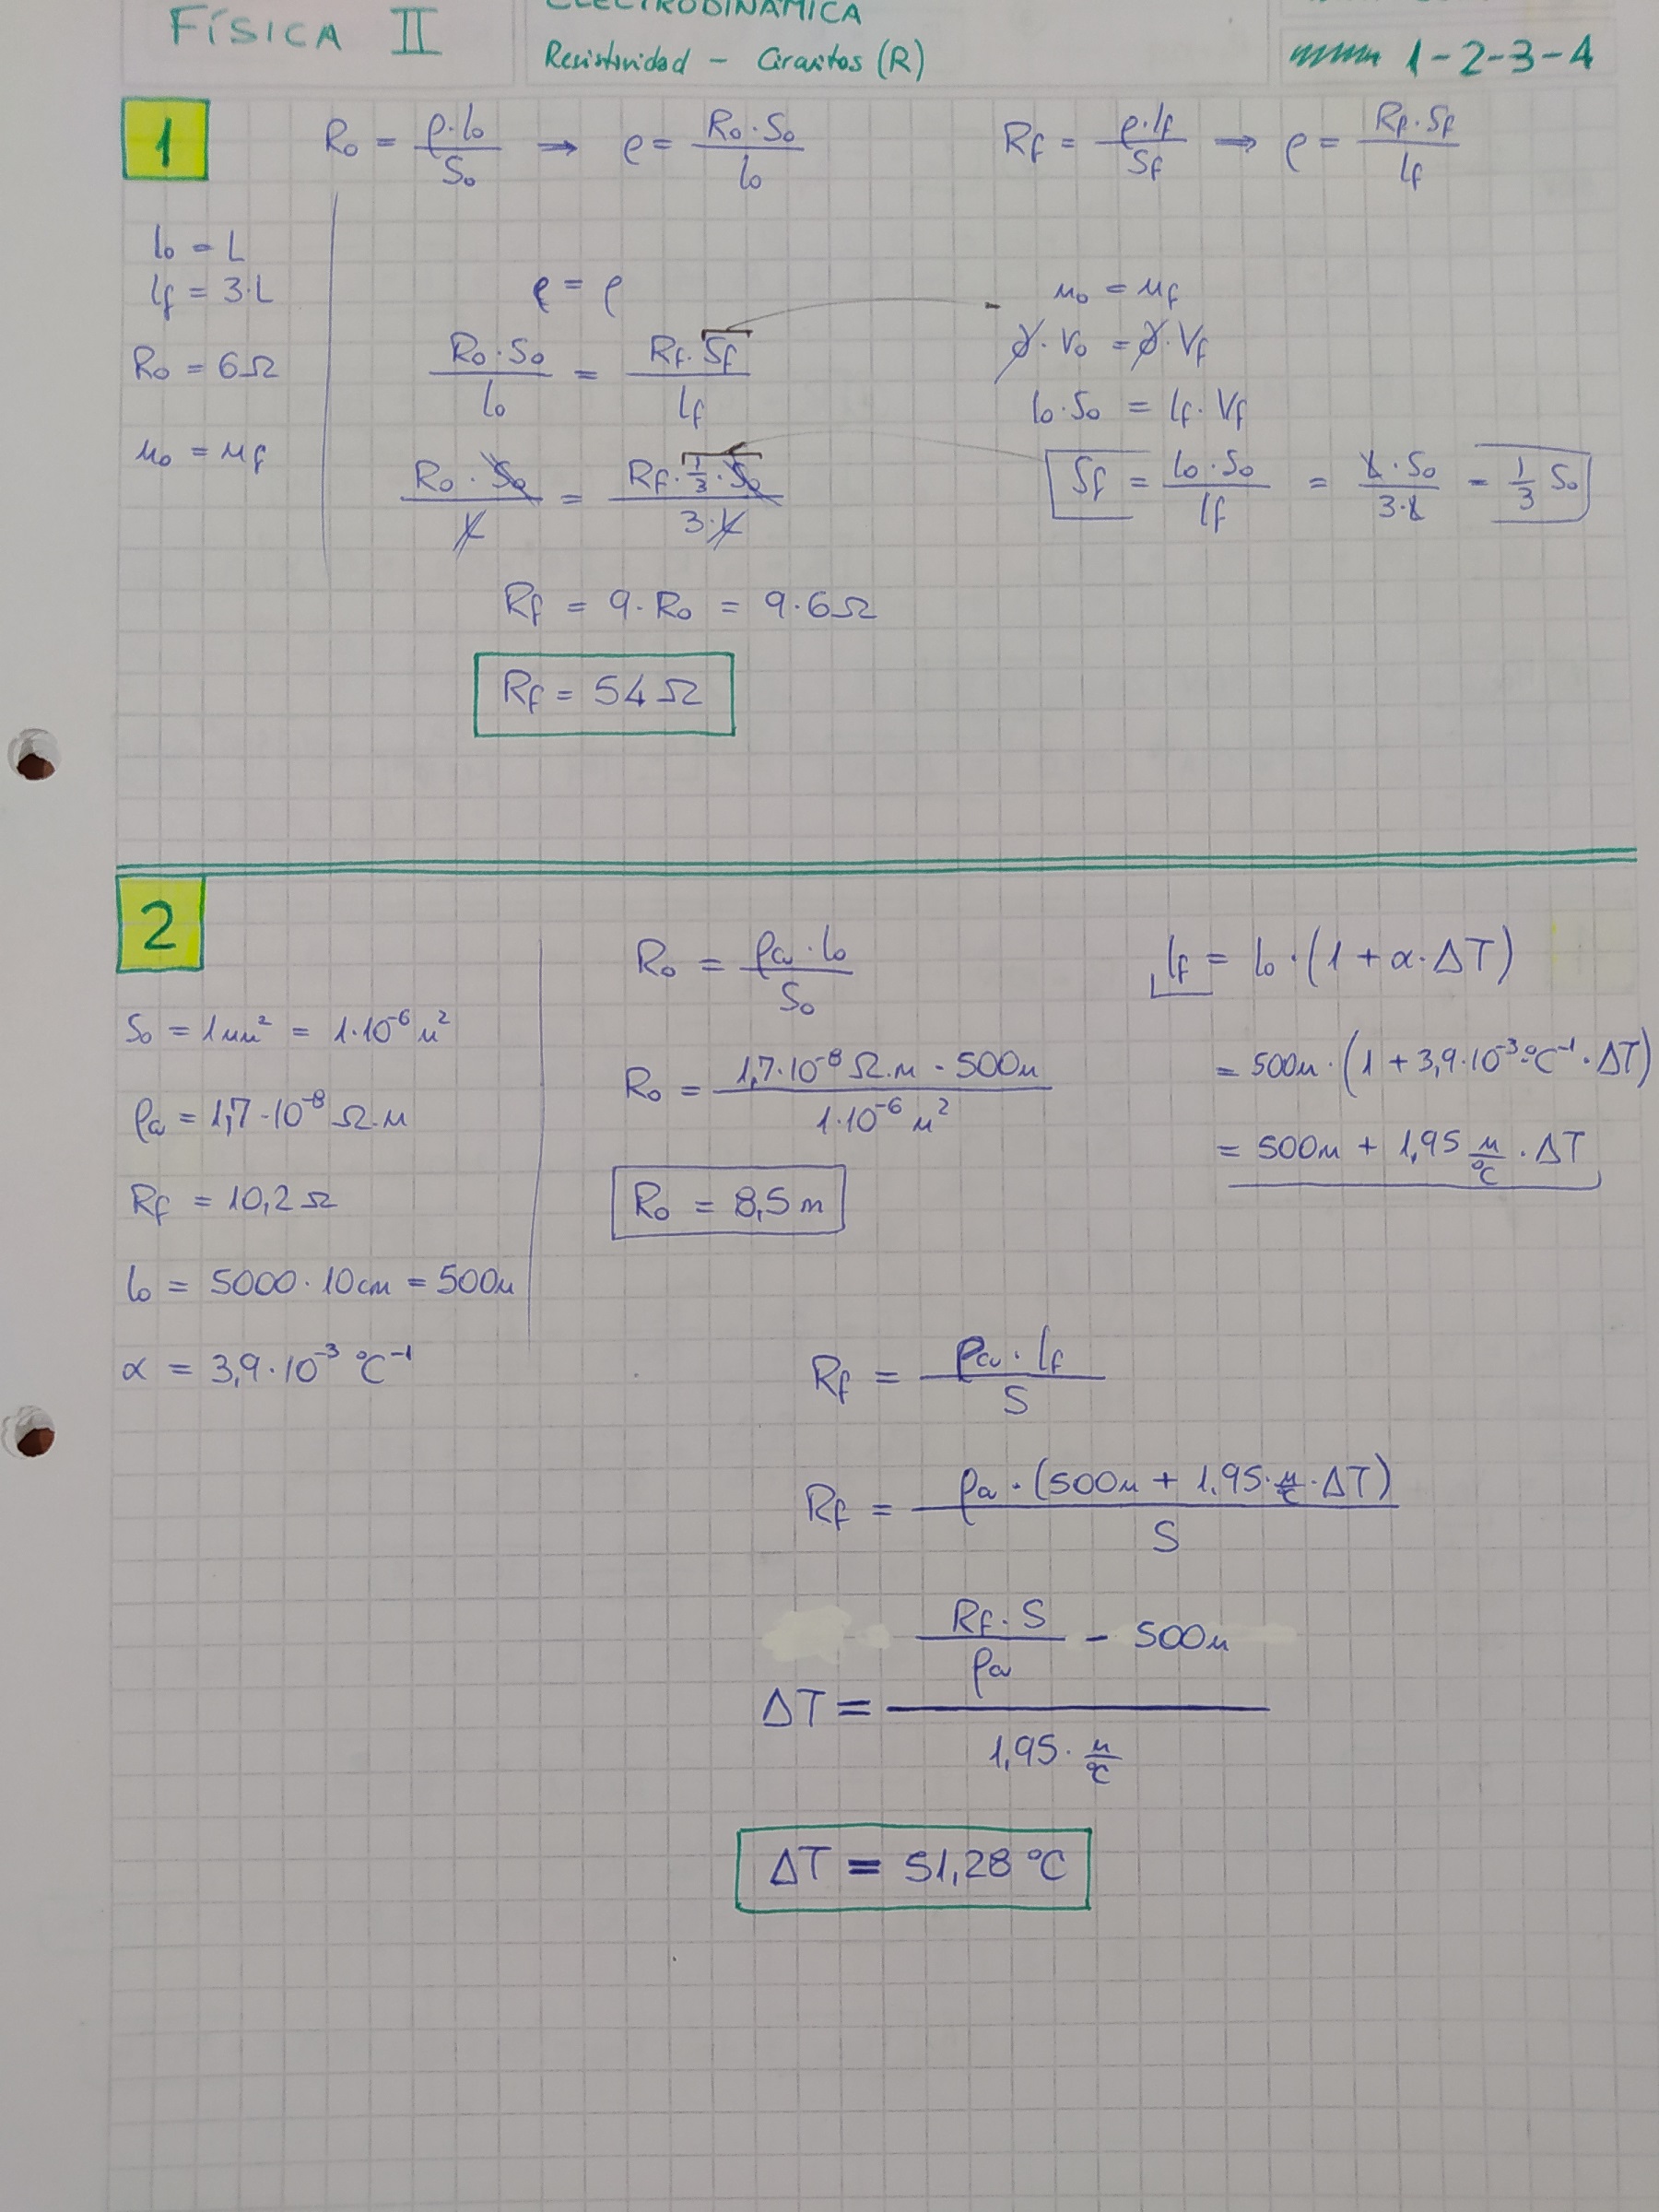 FÍSICA II
ELECTRODINÁMICA
Resistividad - Circuitos (R)
1-2-3-4
1
R₀ = ρ·l₀/S₀ → ρ = R₀·S₀/l₀
Rf = ρ·lf/Sf → ρ = Rf·Sf/lf
l₀ = L
lf = 3·L
R₀ = 6Ω
m₀ = mf
ρ = ρ
R₀·S₀/l₀ = Rf·Sf/lf
R₀·S₀/L = Rf·1/3·S₀/3·L
m₀ = mf
γ·V₀ = γ·Vf
l₀·S₀ = lf·Vf
Sf = l₀·S₀/lf = L·S₀/3·L = 1/3 S₀
Rf = 9·R₀ = 9·6Ω
Rf = 54Ω
2
S₀ = 1mm² = 1·10⁻⁶ m²
ρa = 1,7·10⁻⁸ Ω·m
Rf = 10,2Ω
l₀ = 5000·10cm = 500m
α = 3,9·10⁻³ °C⁻¹
R₀ = ρa·l₀/S₀
R₀ = 1,7·10⁻⁸ Ω·m · 500m/1·10⁻⁶ m²
R₀ = 8,5 m
lf = l₀·(1 + α·ΔT)
= 500m·(1 + 3,9·10⁻³ °C⁻¹·ΔT)
= 500m + 1,95 m/°C · ΔT
Rf = ρa·lf/S
Rf = ρa·(500m + 1,95·m/°C·ΔT)/S
Rf·S/ρa - 500m
ΔT =
1,95·m/°C
ΔT = 51,28 °C